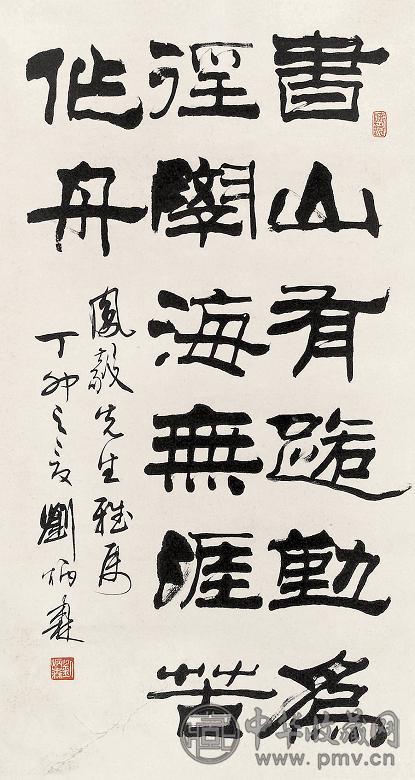 書山有路勤為
徑學海無涯苦
作舟
鳳毅先生雅属
丁卯之夏劉炳森
中华收藏网
www.pmv.cn